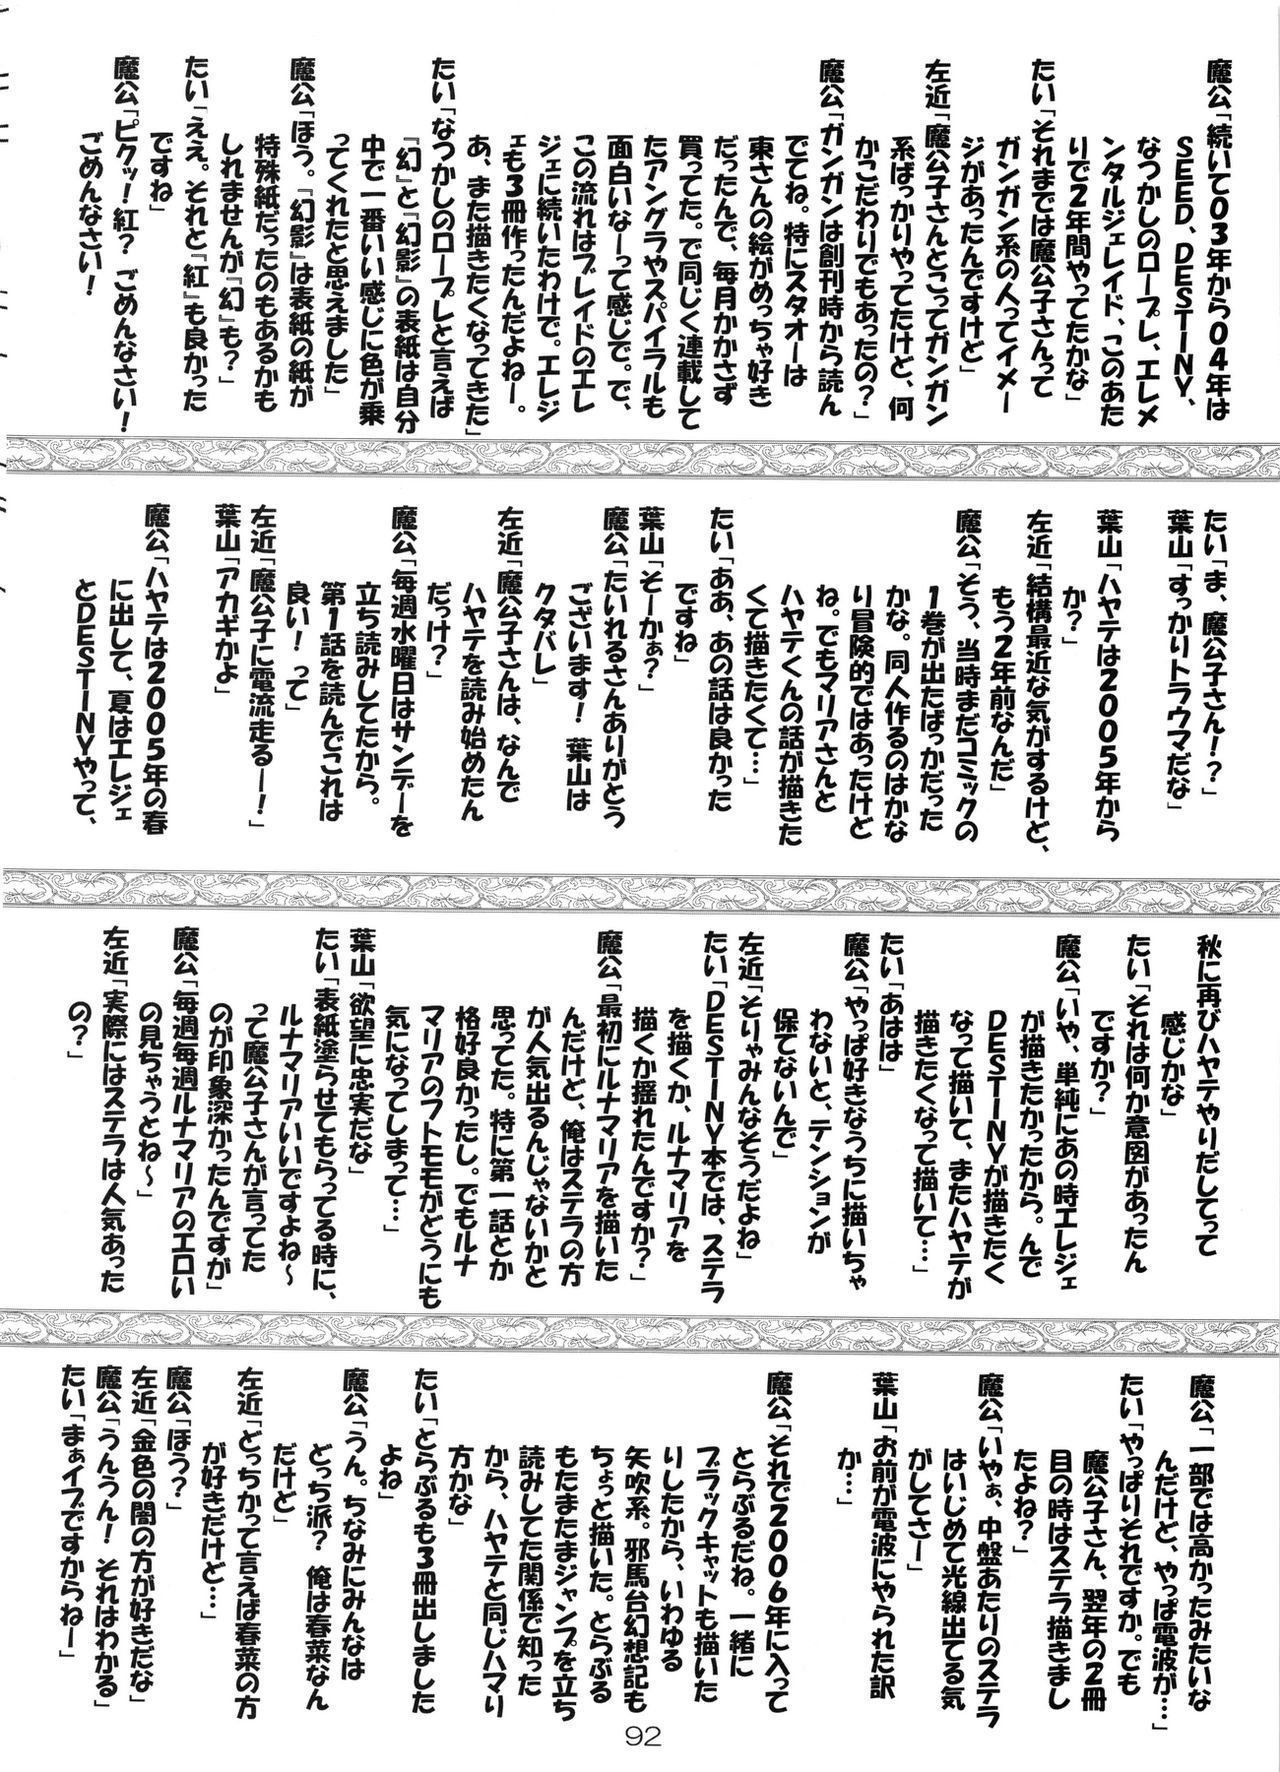 魔公「続いて03年から04年は
SEED、DESTINY、
なつかしのロープレ、エレメ
ンタルジェレイド、このあた
りで2年間やってたかな」
たい「それまでは魔公子さんって
ガンガン系の人ってイメー
ジがあったんですけど」
左近「魔公子さんとこってガンガン
系ばっかりやってたけど、何
かこだわりでもあったの？」
魔公「ガンガンは創刊時から読ん
でてね。特にスタオーは
東さんの絵がめっちゃ好き
だったんで、毎月かかさず
買ってた。で同じく連載して
たアングラやスパイラルも
面白いなーって感じで。で、
この流れはブレイドのエレ
ジェに続いたわけで。エレジ
ェも3冊作ったんだよねー。
あ、また描きたくなってきた」
たい「なつかしのロープレと言えば
『幻』と『幻影』の表紙は自分
中で一番いい感じに色が乗
ってくれたと思えました」
魔公「ほう。『幻影』は表紙の紙が
特殊紙だったのもあるかも
しれませんが『幻』も？」
たい「ええ。それと『紅』も良かった
ですね」
魔公「ピクッ！紅？ごめんなさい！
ごめんなさい！
たい「ま、魔公子さん！？」
葉山「すっかりトラウマだな」
葉山「ハヤテは2005年から
か？」
左近「結構最近な気がするけど、
もう2年前なんだ」
魔公「そう、当時まだコミックの
1巻が出たばっかだった
かな。同人作るのはかな
り冒険的ではあったけど
ね。でもマリアさんと
ハヤテくんの話が描きた
くて描きたくて…」
たい「ああ、あの話は良かった
ですね」
葉山「そーかぁ？」
魔公「たいれるさんありがとう
ございます！葉山は
クタバレ」
左近「魔公子さんは、なんで
ハヤテを読み始めたん
だっけ？」
魔公「毎週水曜日はサンデーを
立ち読みしてたから。
第1話を読んでこれは
良い！って」
左近「魔公子に電流走るー！」
葉山「アカギかよ」
魔公「ハヤテは2005年の春
に出して、夏はエレジェ
とDESTINYやって、
秋に再びハヤテやりだしてって
感じかな」
たい「それは何か意図があったん
ですか？」
魔公「いや、単純にあの時エレジェ
が描きたかったから。んで
DESTINYが描きたく
なって描いて、またハヤテが
描きたくなって描いて…」
たい「あはは」
魔公「やっぱ好きなうちに描いちゃ
わないと、テンションが
保てないんで」
左近「そりゃみんなそうだよね」
たい「DESTINY本では、ステラ
を描くか、ルナマリアを
描くか揺れたんですか？」
魔公「最初にルナマリアを描いた
んだけど、俺はステラの方
が人気出るんじゃないかと
思ってた。特に第一話とか
格好良かったし。でもルナ
マリアのフトモモがどうにも
気になってしまって…」
葉山「欲望に忠実だな」
たい「表紙塗らせてもらってる時に、
ルナマリアいいですよね～
って魔公子さんが言ってた
のが印象深かったんですが」
魔公「毎週毎週ルナマリアのエロい
の見ちゃうとね～」
左近「実際にはステラは人気あった
の？」
魔公「一部では高かったみたいな
んだけど、やっぱ電波が…」
たい「やっぱりそれですか。でも
魔公子さん、翌年の2冊
目の時はステラ描きまし
たよね？」
魔公「いやぁ、中盤あたりのステラ
はいじめて光線出てる気
がしてさー」
葉山「お前が電波にやられた訳
か…」
魔公「それで2006年に入って
とらぶるだね。一緒に
ブラックキャットも描いた
りしたから、いわゆる
矢吹系。邪馬台幻想記も
ちょっと描いた。とらぶる
もたまたまジャンプを立ち
読みしてた関係で知った
から、ハヤテと同じハマり
方かな」
たい「とらぶるも3冊出しました
よね」
魔公「うん。ちなみにみんなは
どっち派？俺は春菜なん
だけど」
左近「どっちかって言えば春菜の方
が好きだけど…」
魔公「ほう？」
左近「金色の闇の方が好きだな」
魔公「うんうん！それはわかる」
たい「まぁイブですからねー」
92